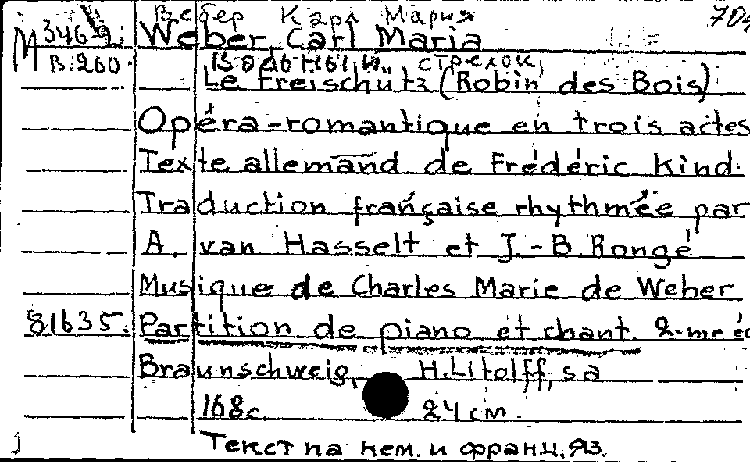 Вебер Карл Мария 70
M 346 Weber, Carl Maria
В.260. стрелок
Le Freischütz (Robin des Bois)
Opéra-romantique en trois actes
Texte allemand de Frédéric Kind.
Traduction française rhythmée par
A. van Hasselt et J.-B. Rongé
Musique de Charles Marie de Weber
81635. Partition de piano et chant. 2-me
Braunschweig, H. Litolff, s a
168 с. 24 см.
Текст на нем. и франц. яз.